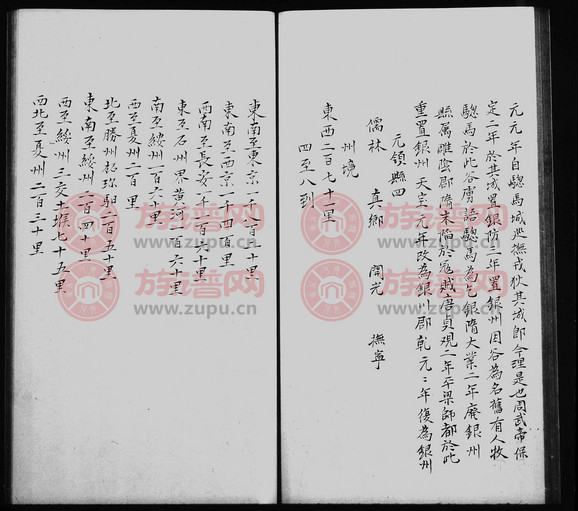 元元年自驄馬城巡撫戎狄其城即今理是也周武帝保
定二年於其城置銀防三年置銀州因谷為名舊有人牧
驄馬於此谷虜語驄馬為乞銀隋大業二年廢銀州
縣屬雕陰郡隋末陷於寇賊唐貞観二年平梁師都於此
重置銀州天宝元年改為銀川郡乾元二年復為銀州
元領縣四
儒林 真鄉 開光 撫寧
州境
東西二百七十二里
四至八到
東南至東京一千八百一十里
東南至西京一千四百里
西南至長安一千一百六十里
東至石州界黄河一百六十里
南至綏州一百六十里
西至夏州二百里
北至勝州 二百五十里
東南至綏州二百四十里
西至綏州三交土堠七十五里
西北至夏州二百三十里
族譜网
www.zupu.cn
族譜网
www.zupu.cn
族譜网
www.zupu.cn
族譜网
www.zupu.cn